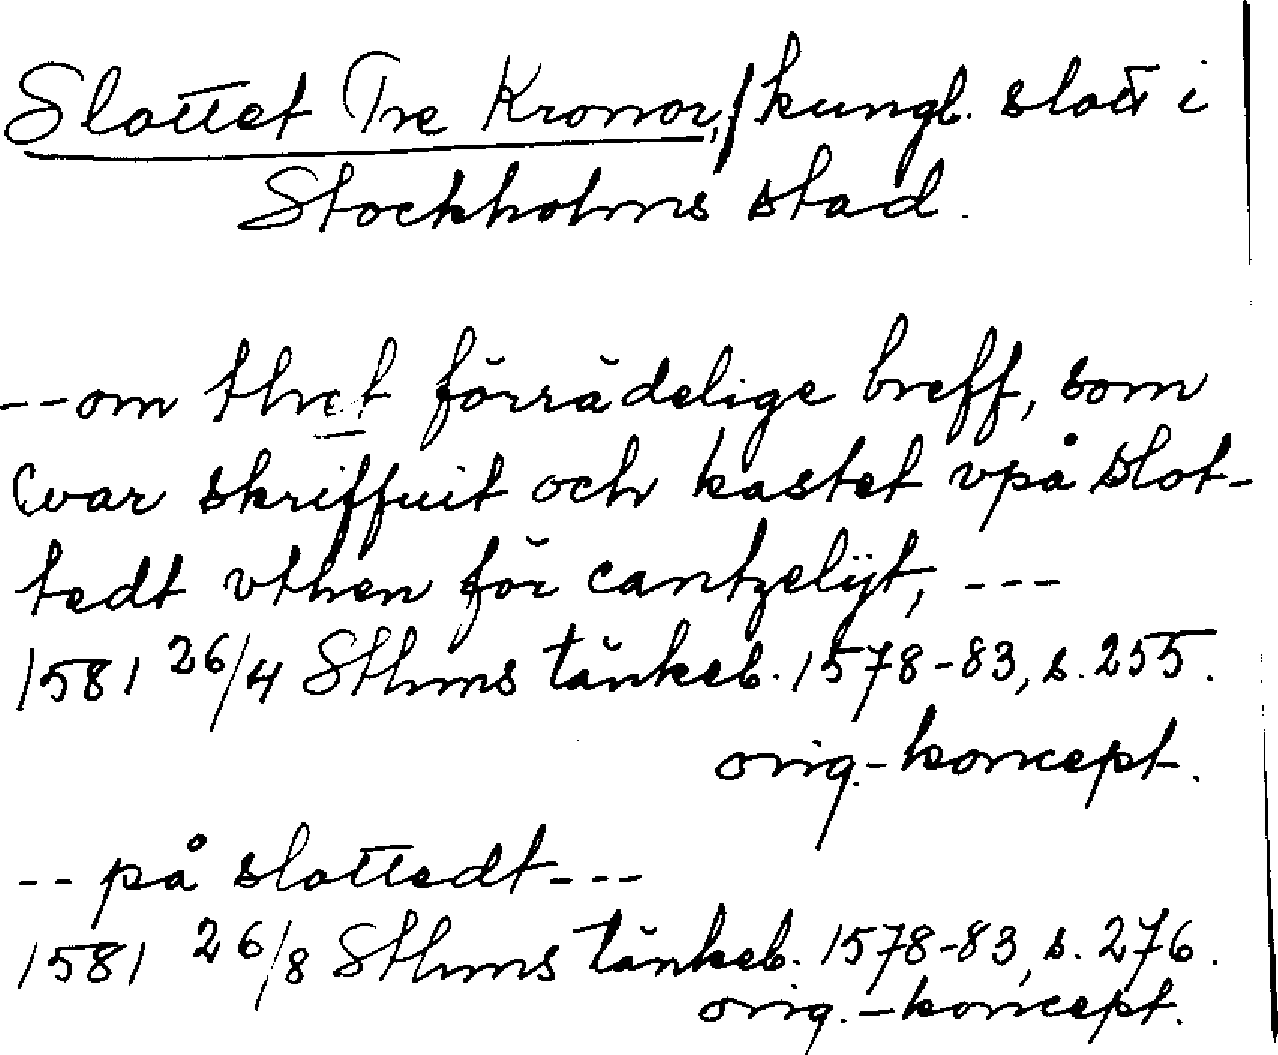 Slottet Tre Kronor, / kungl. slott i
Stockholms stad.
--om thet förrädelige breff, som
war skriffuit och kastet vpå slot-
tedt vthen för cantzelijt, ---
1581 26/4 Sthms tänkeb. 1578-83, s. 255.
orig.-koncept.
-- på slottedt ---
1581 26/8 Sthms tänkeb. 1578-83, s. 276.
orig.-koncept.